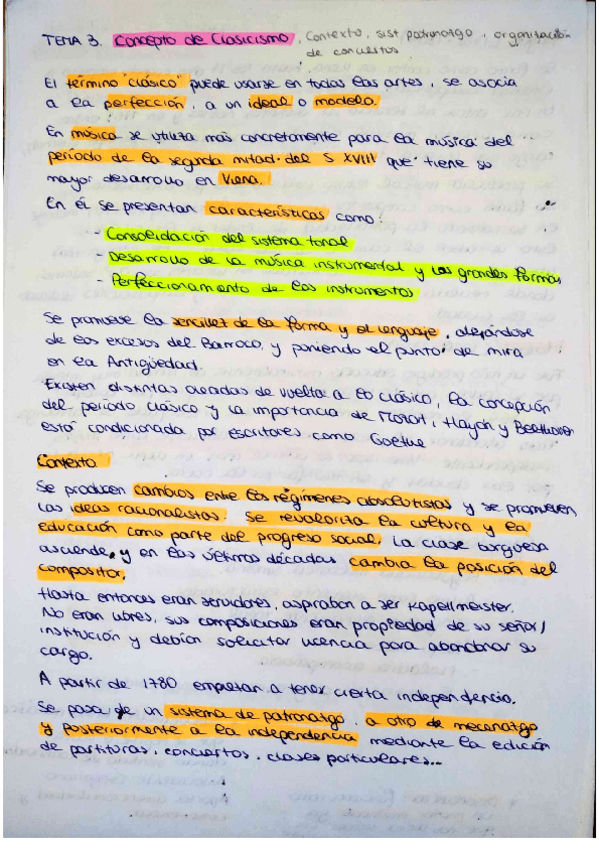 TEMA 3. Concepto de Clasicismo, Contexto, sist patronatgo, organización
de conciertos
El término "clásico" puede usarse en todas las artes, se asocia
a la perfección, a un ideal o modelo.
En música se utiliza más concretamente para la música del
período de la segunda mitad del S XVIII que tiene su
mayor desarrollo en Viena.
En él se presentan características como:
- Consolidación del sistema tonal
- Desarrollo de la música instrumental y las grandes formas
- Perfeccionamiento de los instrumentos
Se promueve la sencillez de la forma y el lenguaje, alejándose
de los excesos del Barroco, y poniendo el punto de mira
en la Antigüedad.
Existen distintas oleadas de vuelta a lo clásico, la concepción
del período clásico y la importancia de Mozart, Haydn y Beethoven
está condicionada por escritores como Goethe
Contexto
Se producen cambios entre los régimenes absolutistas y se promueven
las ideas racionalistas. Se revaloriza la cultura y la
educación como parte del progreso social. La clase burguesa
asciende, y en las últimas décadas cambia la posición del
compositor.
Hasta entonces eran servidores, aspiraban a ser Kapellmeister.
No eran libres, sus composiciones eran propiedad de su señor/
institución y debían solicitar licencia para abandonar su
cargo.
A partir de 1780 empiezan a tener cierta independencia.
Se pasa de un sistema de patronatgo, a otro de mecenatgo
y posteriormente a la independencia mediante la edición
de partituras, conciertos, clases particulares...